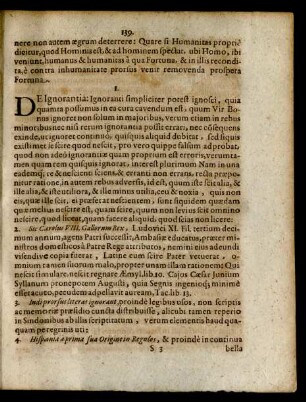 139.
nere non autem ægrum deterrere: Quare si Humanitas propriè
dicitur, quod Hominis est, & ad hominem spectat. ubi Homo, ibi
veniunt, humanus & humanitas à qua Fortuna. & in illis recondi-
ta, è contra inhumanitate prorsus venit removenda prospera
Fortuna.
I.
DE Ignorantiâ: Ignorans simpliciter potest ignosci, quia
quanta possumus in ea cura cavendum est, quum Vir Bo-
nus ignoret non solum in majoribus, verum etiam in rebus
minoribus nec nisi rerum ignorantia possit errari, nec consequens
exinde, ut ignoret continuò: quisquis aliquid dubitet, sed siquis
existimet is scire quod nescit, pro vero quippe falsum ad probat.
quod non adeò ignorantiæ quàm propriùm est erroris, verumta-
men quum is errat, idem quisquis ignorat, interest plurimùm Nam in una
eademq; re & nescienti sciens, & erranti non errans. recta præpo-
nitur, itemq; cum res sunt diversæ, adversa, id est, quum iste scit alia, &
ille alia, & iste utiliora, & ille minùs utilia, eu & noxia, quis non in
eis, quæ ille scit, ei præferat nescientem, sunt enim quædam quæ
quæ melius nescire est, quàm scire, quum non levius sit et omninò
nescire, quod liceat, quam facere aliquid quod scias non licere:
2. Sic Carolus VIII. Gallorum Rex, Ludovici XI. Fil. tertium deci-
mum annum agens Patri successit, Ambasiæ educatus, præter mini-
stros domesticos à Patre Rege attributos, nemini eius adeundi
visendive copia fuerat, Latine eum scire Pater vetuerat, o-
mninoq; nomen suorum malo, propter unam illam rationem: Qui
nescit simulare, nescit regnare Æmyl. lib. 10. Cajos Cæsar Junium
Syllanum pronepotem Augusti, quia Segnis ingenioq; minimè
esset acuto, petudem adpellavit auream, Tac. lib. 13.
Indi prorsus literas ignorant, proinde legibus usos, non scriptis
ac memoriæ præsidio cuncta distribuisse, alicubi tamen reperio
in Sindonibus ab illis scriptitatum, verum elementis haud qua-
quam peregrinis uti:
4. Hispania à prima sua Origine in Regulos, & proindè in continua
S 3 bella